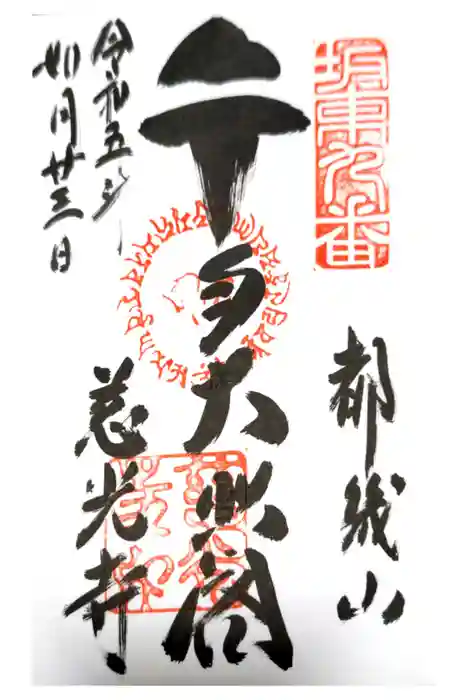 坂東九番
都幾山
千手大悲閣
令和五年
如月廿三日
慈光寺